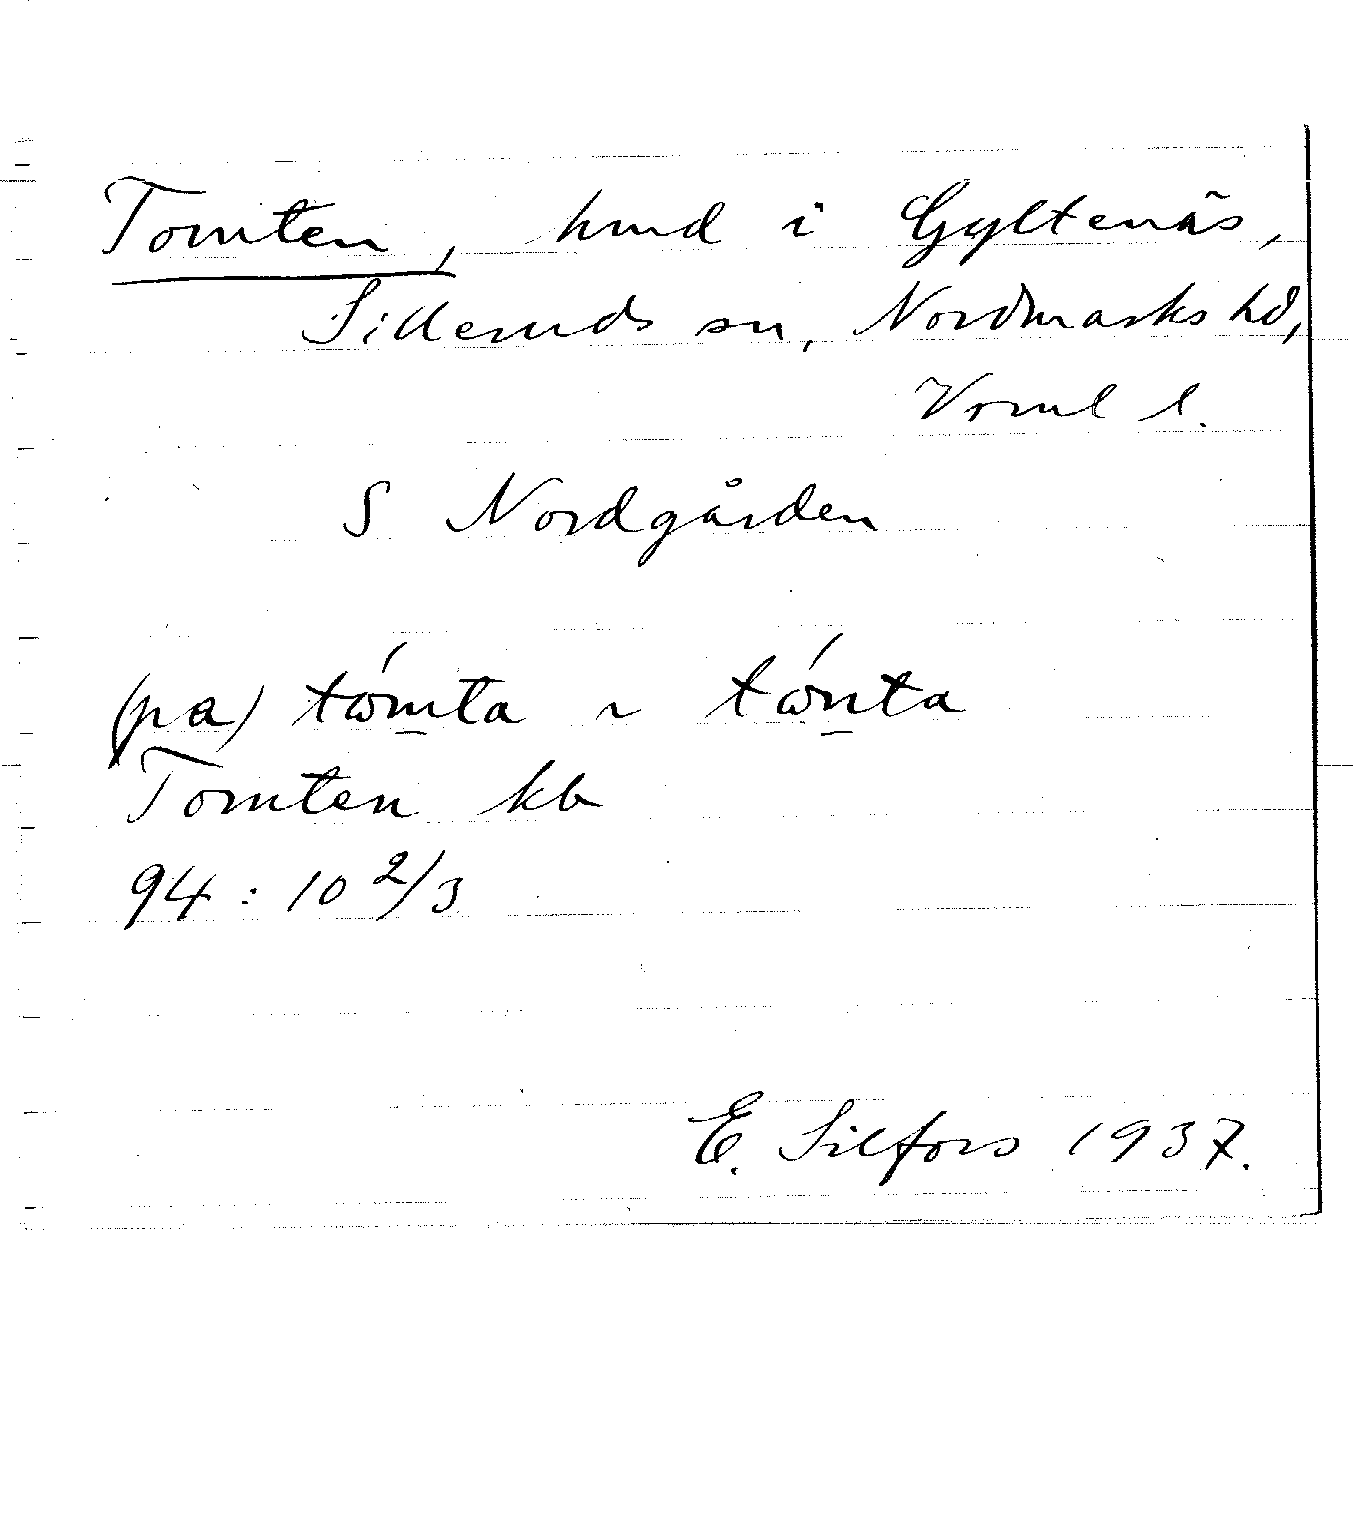 Tomten, hmd i Gyltenäs,
Silleruds sn, Nordmarks hd,
Vrml l.
S Nordgården
(pa) tómta ~ tónta
Tomten kb
94 : 10 2/3
E. Silfors 1937.